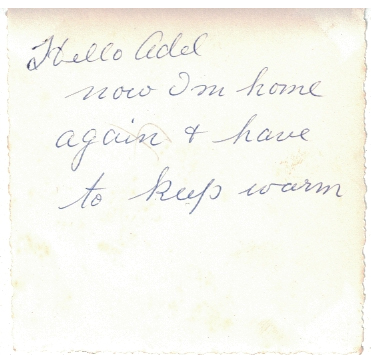 Hello Adel
now I'm home
again & have
to keep warm